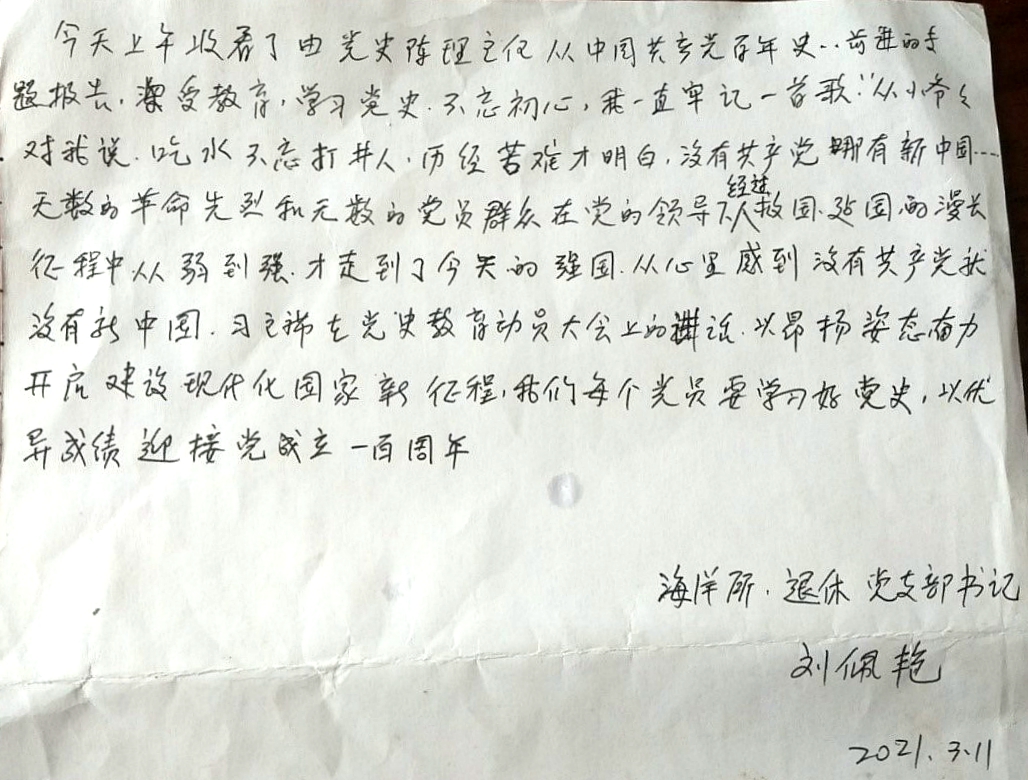 今天上午收看了由党史陈理主任从中国共产党百年史..前进的专
题报告,深受教育,学习党史.不忘初心,我一直牢记一首歌:"从小爷々
对我说.吃水不忘打井人,历经苦难才明白,没有共产党哪有新中国……
无数的革命先烈和无数的党员群众在党的领导下人经过救国.建国的漫长
征程中从弱到强.才走到了今天的强国.从心里感到没有共产党就
没有新中国.习主席在党史教育动员大会上的讲话.以昂扬姿态奋力
开启建设现代化国家新征程,我们每个党员要学习好党史,以优
异成绩迎接党成立一百周年
海洋所.退休党支部书记
刘佩艳
2021.3.11